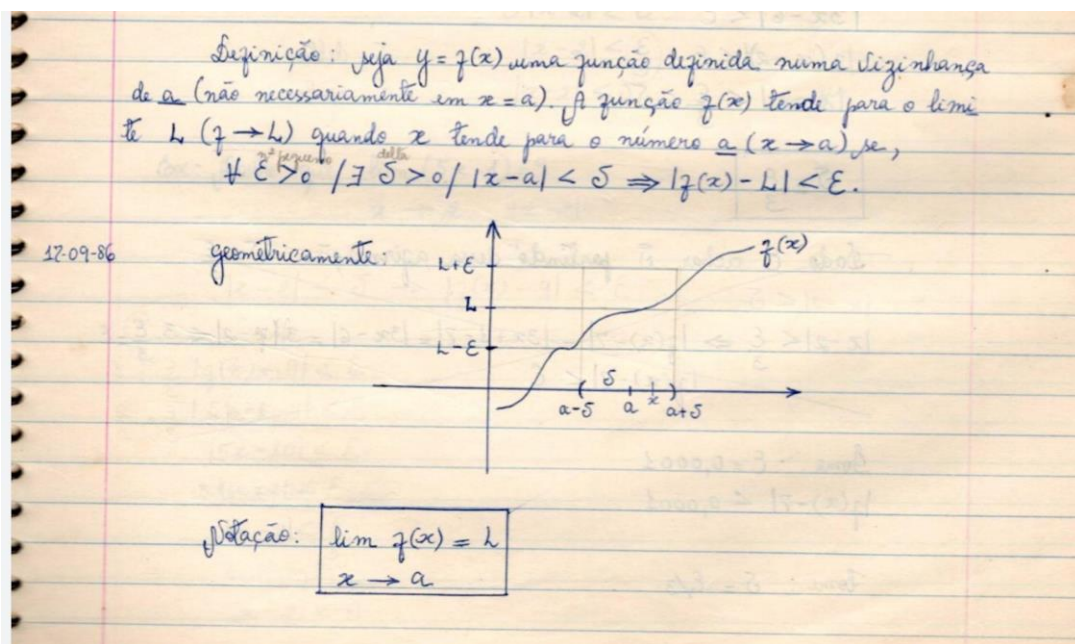 Definição: seja y = f(x) uma função definida numa vizinhança
de a (não necessariamente em x = a). A função f(x) tende para o limi
te L (f → L) quando x tende para o número a (x → a) se,
nº pequeno delta
∀ ε > 0 / ∃ δ > 0 / |x - a| < δ ⇒ |f(x) - L| < ε.
17-09-86 geometricamente.
f(x)
L+ε
L
L-ε
δ
a-δ a x a+δ
Notação: lim f(x) = L
x → a